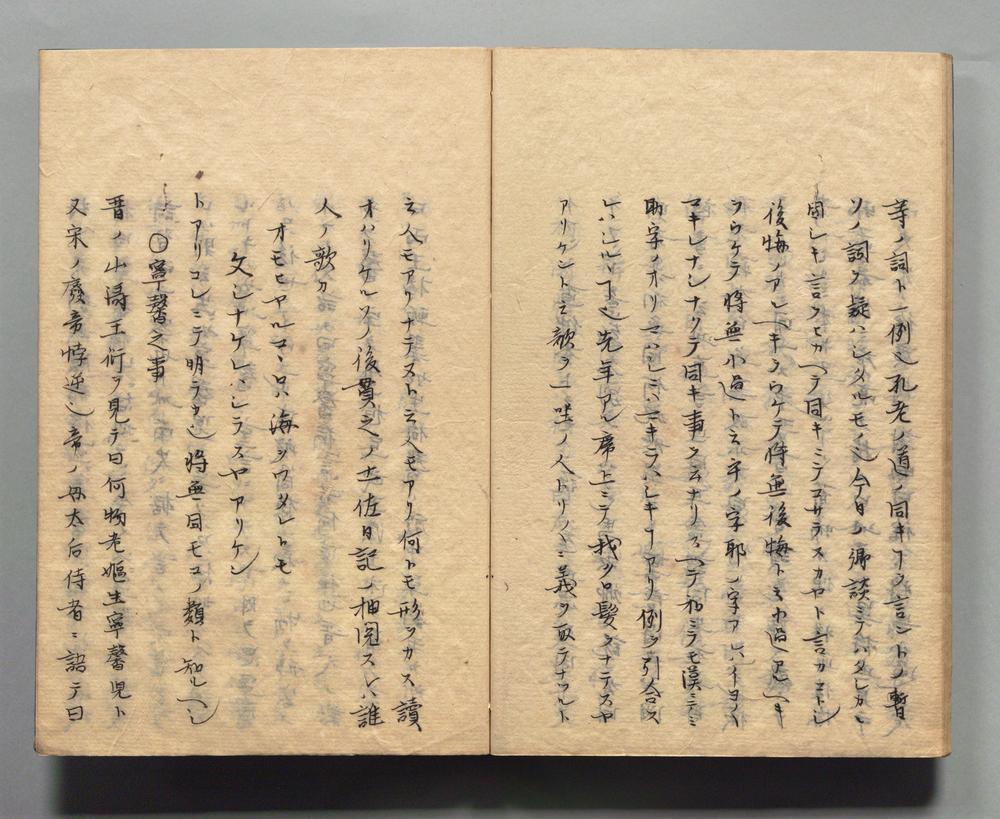 等ノ詞ト一例也孔老ノ道ノ同キヿヲ言ントノ暫
ソノ詞ヲ疑ハシメタルモノ也今日ノ郷談ミテハタレカ
同シキ言クヒカヘテ同キミテコサラスカヤト言カコトシ
後悔ノアルヘキヲウケテ将無後悔トミ小過アルヘキ
ヲウケテ将無小過ト云乎ノ字耶ノ字ヲ
ナクテ同キ事ク云ナリスヘテ和ミテモ漢ミテモ
助字ノオリマハシミハキラハシキヿアリ例ヲ引合ス
レハシルヽ也先年アル席上ミテ我クロ髪ヲナテスヤ
アリケント云歌ヲ上坐ノ人トリ〳〵ミ義ヲ取テナツルト
云人モアリナテスト云人モアリ何トモ形ツカス讀
オハリケルソノ後貫之ノ土佐日記ノ抽閲スレハ誰
人ヶ歌カ
オモヒヤルコヽロハ海ヲワタレトモ
文シナケレハシラスヤアリケン
トアリコレミテ明ラケシ也将無同モコノ類ト知ルヘシ
○寧馨之事
晋ノ山濤王衍ヲ見テ曰何物老嫗生寧馨児ト
又宋ノ廃帝悖逆也帝ノ母太后侍者ニ語テ曰